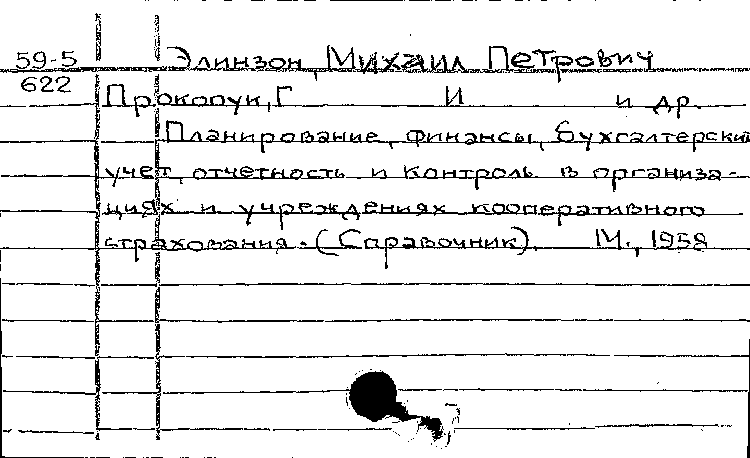 59-5 Элинзон, Михаил Петрович
622 Прокопук, Г И и др.
Планирование, финансы, бухгалтерский
учет, отчетность и контроль в организа-
циях и учреждениях кооперативного
страхования. (Справочник). М., 1958